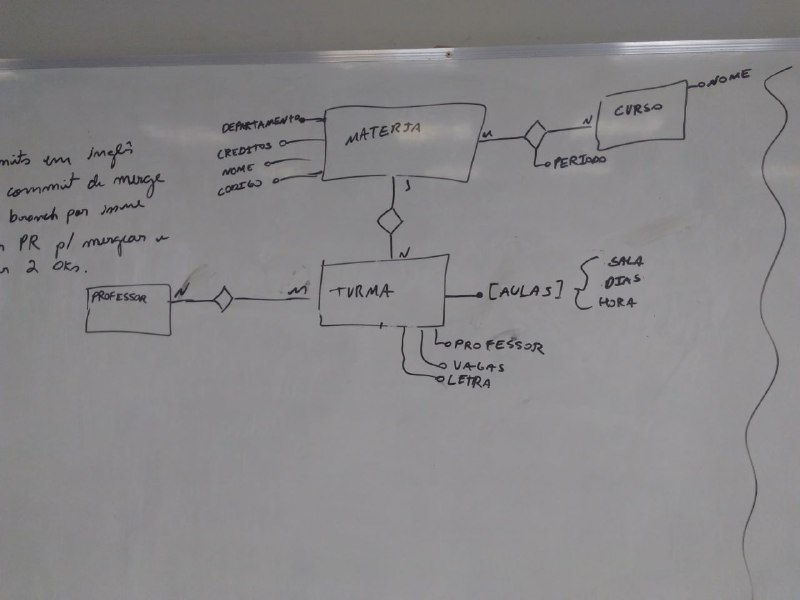 em inglês
commit de merge
branch por issue
PR p/ mergear e
2 OKs.
DEPARTAMENTO
CREDITOS
NOME
CODIGO
MATERIA
M
N
CURSO
NOME
PERIODO
1
N
PROFESSOR
N
M
TURMA
[AULAS]
SALA
DIAS
HORA
PROFESSOR
VAGAS
LETRA